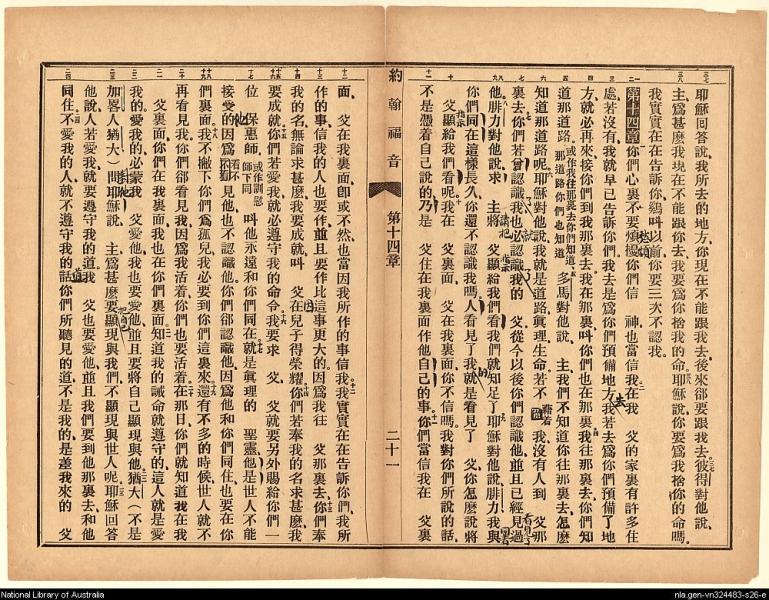 耶穌回答說、我所去的地方、你現在不能跟我去、後來卻要跟我去、彼得對他說、
主、爲甚麼我現在不能跟你去、我要爲你捨我的命、耶穌說、你要爲我捨你的命嗎、
我實實在在告訴你、鷄叫以前、你要三次不認我。
第十四章 你們心裏不要煩擾、你們信 神、也當信我、在我 父的家裏、有許多住
處、若沒有、我就早已告訴你們、我去是爲你們預備地方、我若去爲你們預備了地
方、就必再來接你們到我那裏去、我在那裏、叫你們也在那裏、我往那裏去、你們知
道那道路、或作我往那裏去你們知道那道路你們也知道 多馬對他說、 主、我們不知道你往那裏去、怎麼
知道那道路呢、耶穌對他說、我就是道路眞理生命、若不 我、沒有人到 父那
裏去、你們若曾認識我、也必認識我的 父、從今以後、你們認識他、並且已經見過
他、腓力對他說、求 主將 父顯給我們看、我們就知足了、耶穌對他說、腓力、我與
你們同在這樣長久、你還不認識我嗎、人看見了我、就是看見了 父、你怎麼說、將
父顯給我們看呢、我在 父裏面、 父在我裏面、你不信嗎、我對你們所說的話、
不是憑着自己說的、乃是 父住在我裏面、作他自己的事、你們當信我在 父裏
約翰福音 第十四章 二十一
面、 父在我裏面、卽或不然、也當因我所作的事信我、我實實在在告訴你們、我所
作的事、信我的人也要作、並且要作比這事更大的、因爲我往 父那裏去、你們奉
我的名、無論求甚麼、我要成就、叫 父在兒子得榮耀、你們若奉我的名求甚麼、我
要成就、你們若愛我、就必遵守我的命令、我要求 父、 父就要另外賜給你們一
位 保惠師、或作訓慰師下同 叫他永遠和你們同在、就是眞理的 聖靈、他是世人不能
接受的、因爲 見他、也不認識他、你們卻認識他、因爲他和你們同住、也要在你
們裏面、我不撇下你們爲孤兒、我必要到你們這裏來、還有不多的時候、世人就不
再看見我、你們卻看見我、因爲我活着、你們也要活着、在那日、你們就知道我在我
父裏面、你們在我裏面、我也在你們裏面、知道我的誡命就遵守的、這人就是愛
我的、愛我的必蒙我 父愛他、我也要愛他、並且要將自己顯現與他、猶大、（不是
加畧人猶大）問耶穌說、 主、爲甚麼要顯現與我們、不顯現與世人呢、耶穌回答
他說、人若愛我、就要遵守我的道、我 父也要愛他、並且我們要到他那裏去、和他
同住、不愛我的人、就不遵守我的話、你們所聽見的道、不是我的、是差我來的 父
National Library of Australia
nla.gen-vn324483-s26-e